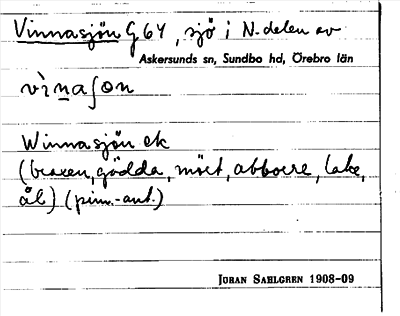 Vinnasjön G64, sjö i N-delen av
Askersunds sn, Sundbo hd, Örebro län
vìnaʃon
Winnasjön ek
(braxen, gädda, mört, abborre, lake,
ål) (pinn.-ant.)
JOHAN SAHLGREN 1908-09